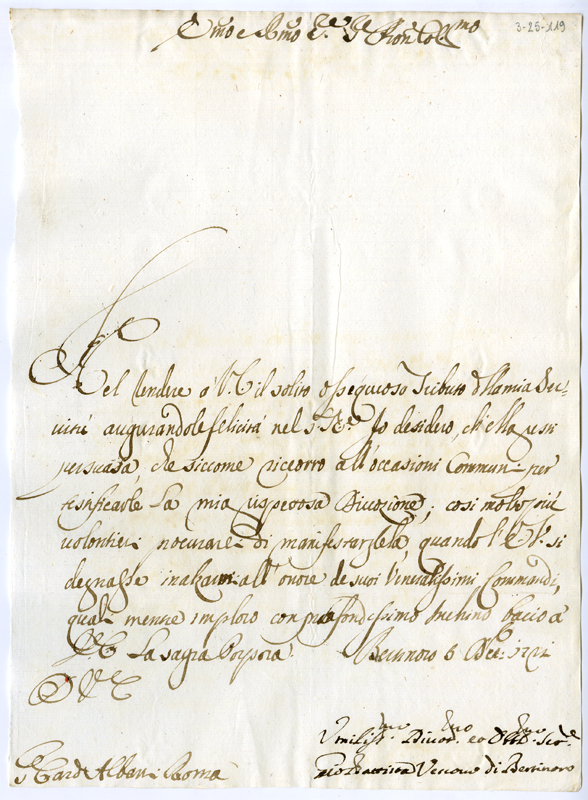 Emo e Rmo Sre Sre Pron Collmo
3-25-119
Nel rendere á V. E il solito ossequioso Tributo della mia Ser-
vitú augurandole felicitá nel Sto Ne Io desidero, ch'Ella resti
persuasa, che siccome ricorro all'occasioni Communi per
testificarle la mia rispettosa Divozione; cosi molto piú
volontieri procurarei di manifestargliela, quando l'E. V. si
degnasse inalzarmi all'onore de suoi Veneratissimi Commandi,
quali mentre imploro con profondissimo Inchino bacio á
V. E la sagra Porpora. Bertinoro 6 Dec.
D V E
Umilissmo Divotmo ed Obbmo Serre
Gio Battista Vescovo di Bertinoro
Sr Card Albani Roma